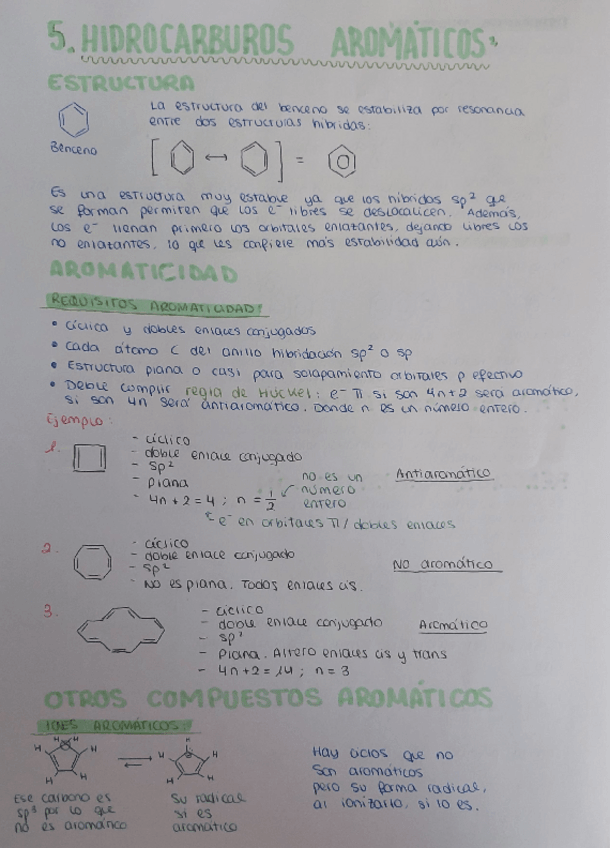 5. HIDROCARBUROS AROMÁTICOS
ESTRUCTURA
La estructura del benceno se estabiliza por resonancia
entre dos estructuras híbridas:
Benceno
[ ↔ ] =
Es una estructura muy estable ya que los híbridos sp² que
se forman permiten que los e⁻ libres se deslocalicen. Además,
los e⁻ llenan primero los orbitales enlazantes, dejando libres los
no enlazantes, lo que les confiere más estabilidad aún.
AROMATICIDAD
REQUISITOS AROMATICIDAD:
• Cíclica y dobles enlaces conjugados
• Cada átomo C del anillo hibridación sp² o sp
• Estructura plana o casi para solapamiento orbitales p efectivo
• Debe cumplir regla de Hückel: e⁻ π si son 4n+2 será aromático,
si son 4n será antiaromático. Donde n es un número entero.
Ejemplo:
1.
- cíclico
- doble enlace conjugado
- sp²
- plana
- 4n + 2 = 4 ; n = 1/2
no es un
número
entero
Antiaromático
e⁻ en orbitales π / dobles enlaces
2.
- cíclico
- doble enlace conjugado
- sp²
- No es plana. Todos enlaces cis.
No aromático
3.
- cíclico
- doble enlace conjugado
- sp²
- Plana. Altero enlaces cis y trans
- 4n + 2 = 14 ; n = 3
Aromático
OTROS COMPUESTOS AROMÁTICOS
IONES AROMÁTICOS:
H H H H H H
H H H H H
Ese carbono es
sp³ por lo que
no es aromático
Su radical
sí es
aromático
Hay ciclos que no
son aromáticos
pero su forma radical,
al ionizarlo, sí lo es.